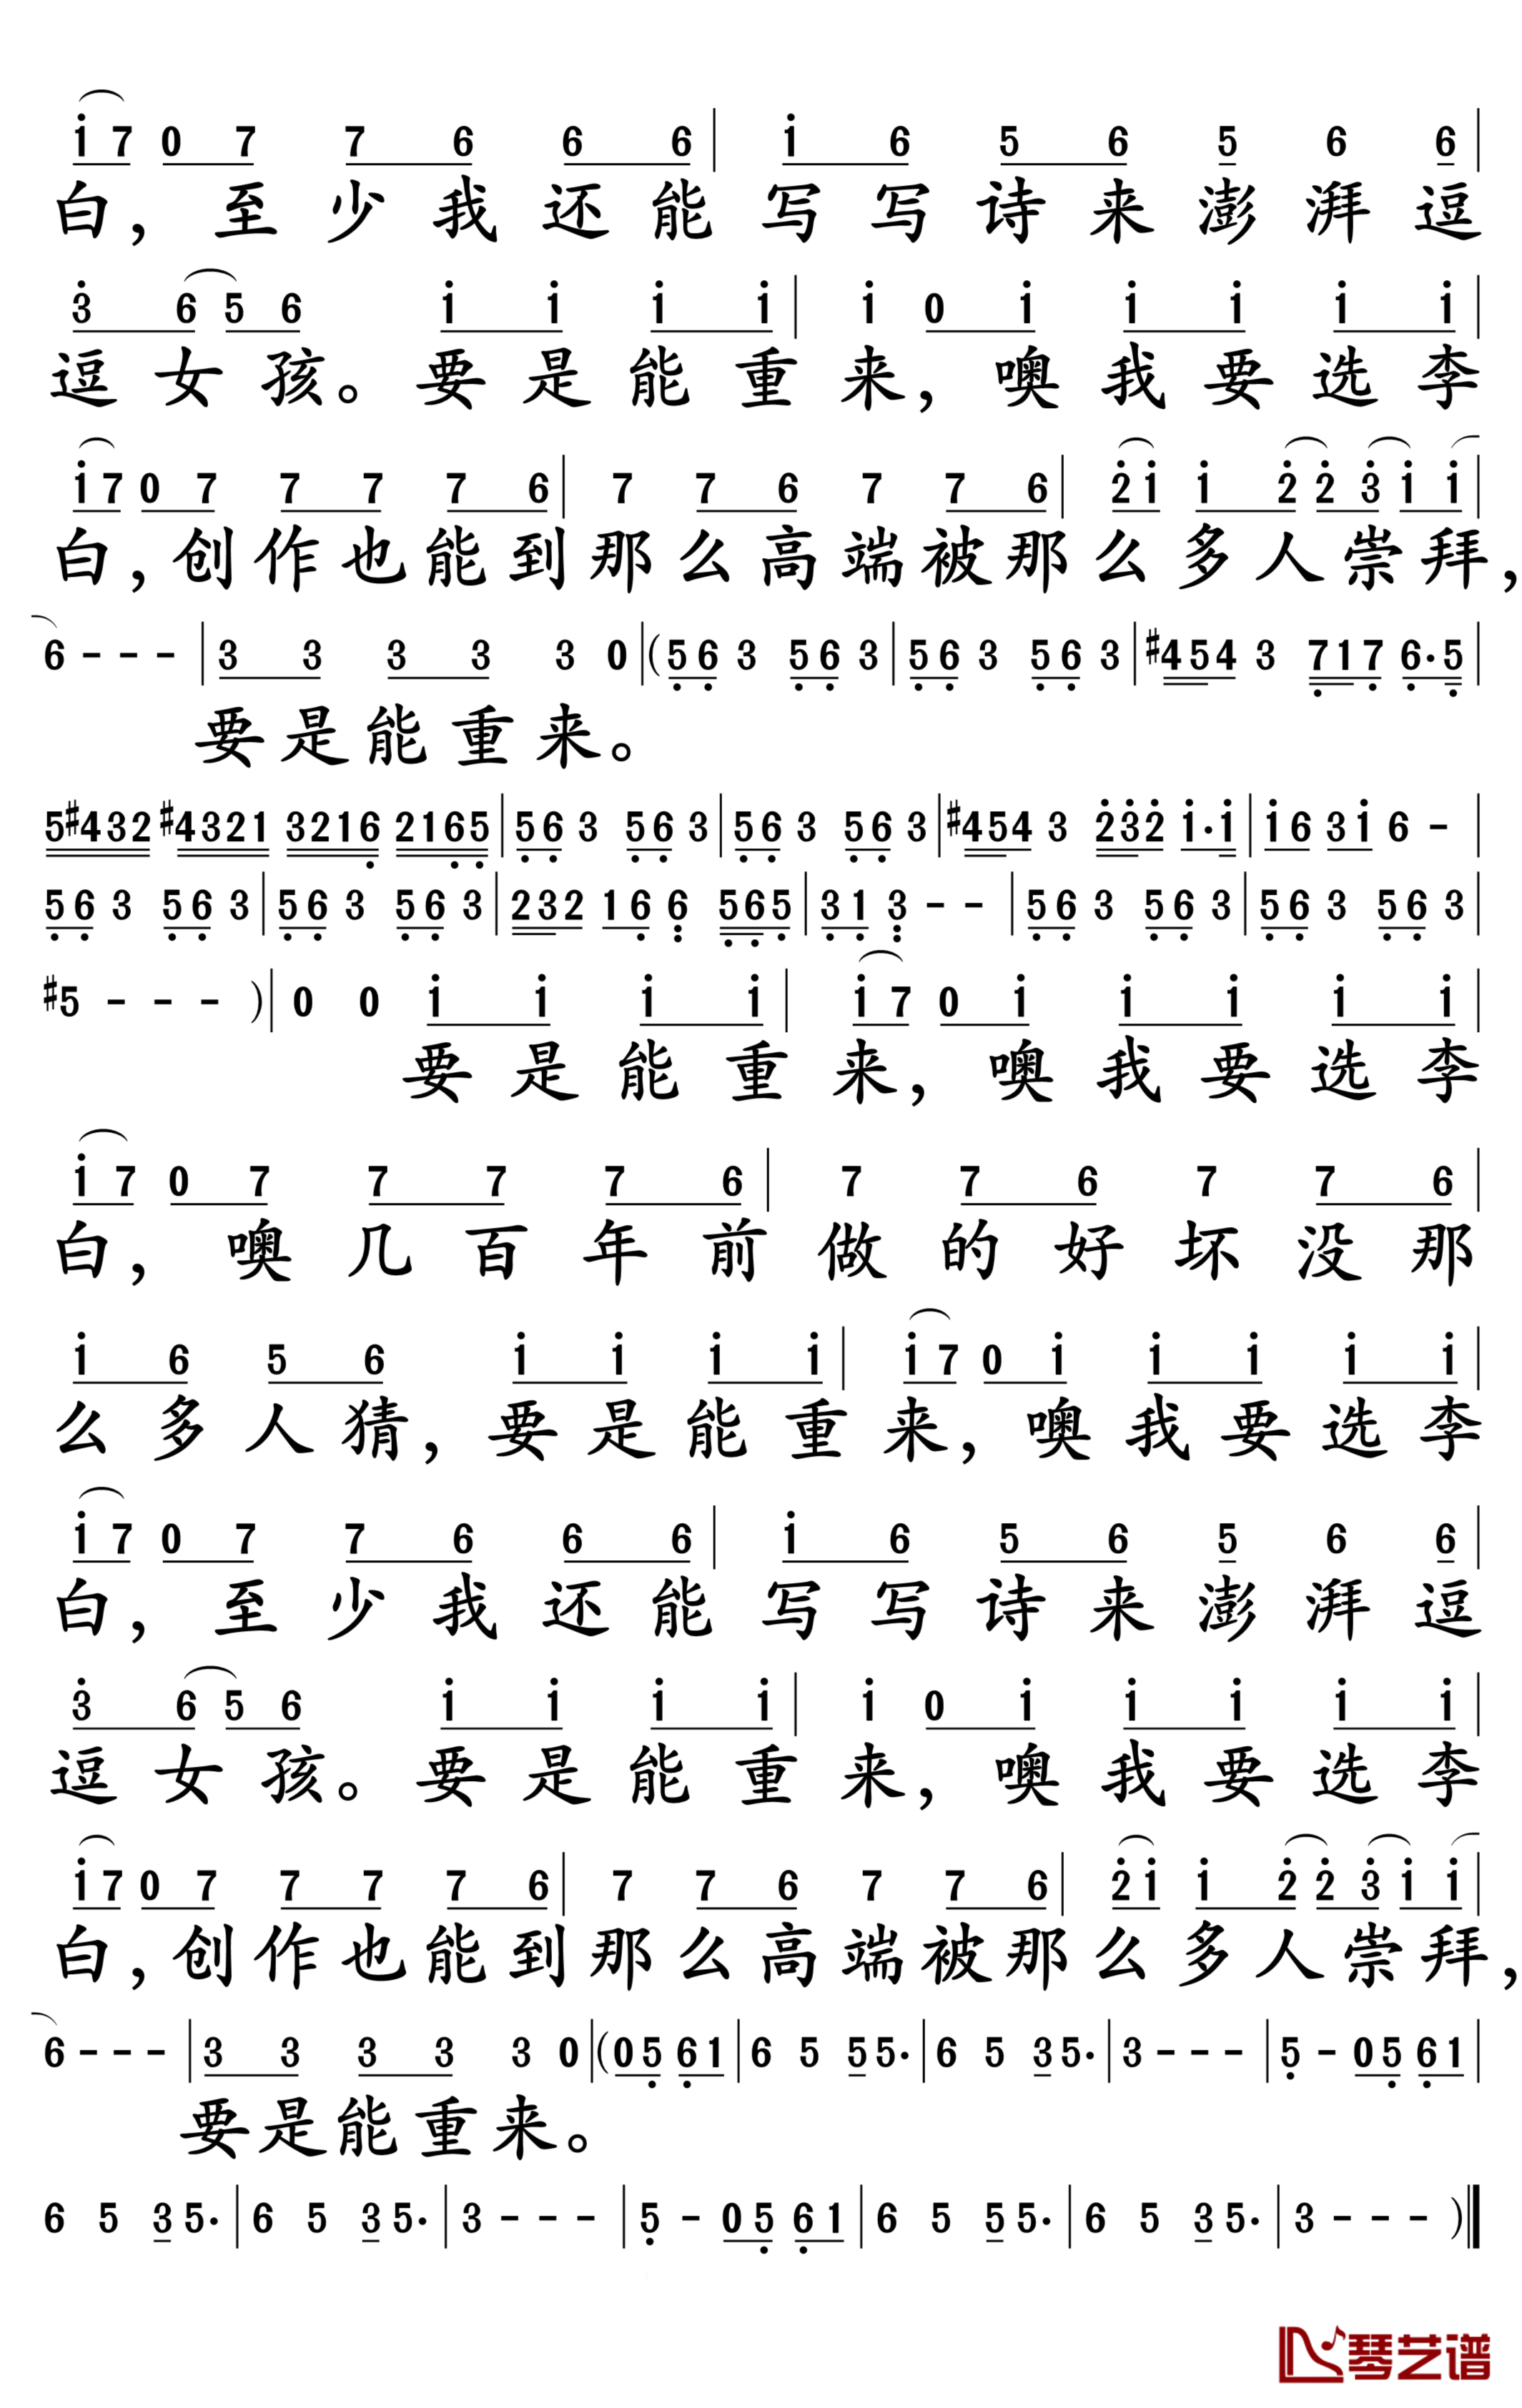 i 7 0 7 7 6 6 6 | i 6 5 6 5 6 6 |
白，至少我还能写写诗来澎湃逗
3 6 5 6 i i i i | i 0 i i i i i |
逗女孩。要是能重来，噢我要选李
i 7 0 7 7 7 7 6 | 7 7 6 7 7 6 | 2 i i 2 2 3 i i |
白，创作也能到那么高端被那么多人崇拜，
6 - - - | 3 3 3 3 3 0 | ( 5 6 3 5 6 3 | 5 6 3 5 6 3 | #4 5 4 3 7 1 7 6 · 5 |
要是能重来。
5 #4 3 2 #4 3 2 1 3 2 1 6 2 1 6 5 | 5 6 3 5 6 3 | 5 6 3 5 6 3 | #4 5 4 3 2 3 2 i · i | i 6 3 i 6 - |
5 6 3 5 6 3 | 5 6 3 5 6 3 | 2 3 2 1 6 6 5 6 5 | 3 1 3 - - | 5 6 3 5 6 3 | 5 6 3 5 6 3 |
#5 - - - ) | 0 0 i i i i | i 7 0 i i i i i |
要是能重来，噢我要选李
i 7 0 7 7 7 7 6 | 7 7 6 7 7 6 |
白，噢几百年前做的好坏没那
i 6 5 6 i i i i | i 7 0 i i i i i |
么多人猜，要是能重来，噢我要选李
i 7 0 7 7 6 6 6 | i 6 5 6 5 6 6 |
白，至少我还能写写诗来澎湃逗
3 6 5 6 i i i i | i 0 i i i i i |
逗女孩。要是能重来，噢我要选李
i 7 0 7 7 7 7 6 | 7 7 6 7 7 6 | 2 i i 2 2 3 i i |
白，创作也能到那么高端被那么多人崇拜，
6 - - - | 3 3 3 3 3 0 | ( 0 5 6 1 | 6 5 5 5 · | 6 5 3 5 · | 3 - - - | 5 - 0 5 6 1 |
要是能重来。
6 5 3 5 · | 6 5 3 5 · | 3 - - - | 5 - 0 5 6 1 | 6 5 5 5 · | 6 5 3 5 · | 3 - - - )
琴艺谱